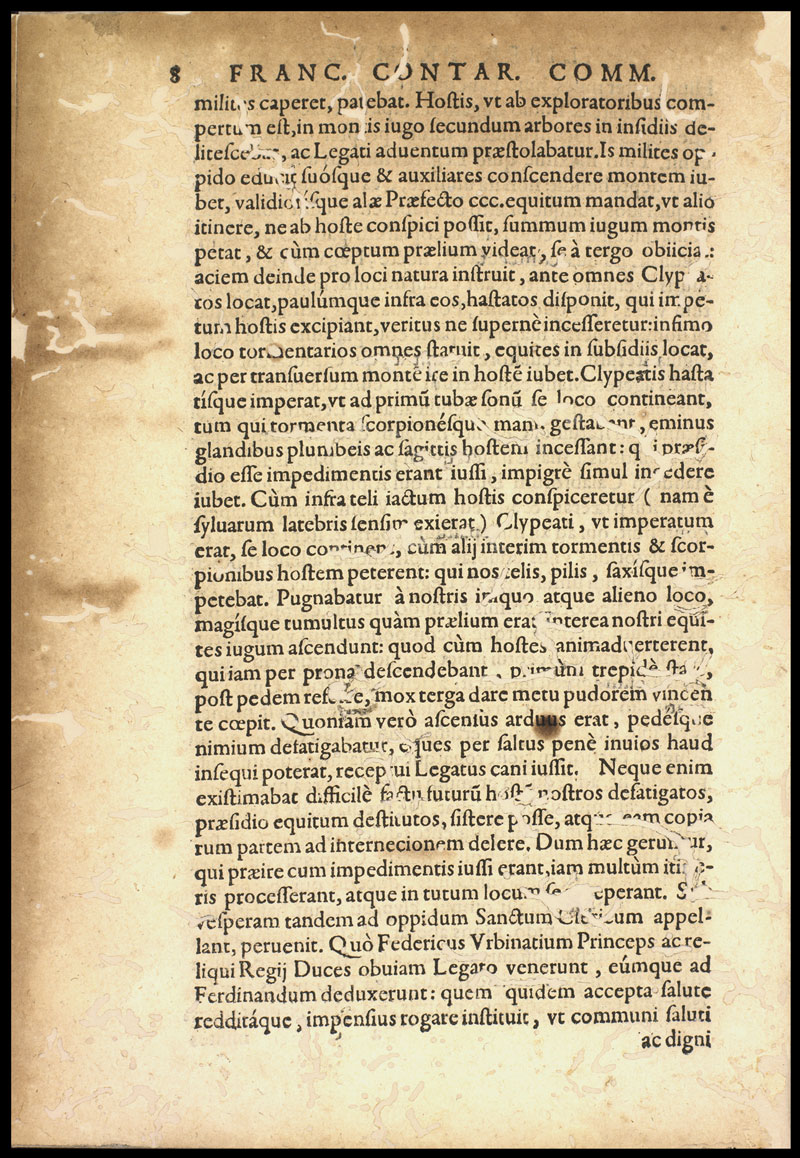 8 FRANC. CONTAR. COMM.
caperet, patebat. Hoſtis, vt ab exploratoribus com-
eſt, in iugo ſecundum arbores in inſidiis de-
ac Legati aduentum præſtolabatur. Is milites
pido ſuóſque & auxiliares conſcendere montem iu-
bet, alæ Præfecto ccc. equitum mandat, vt alio
itinere, ne ab hoſte conſpici poſſit, ſummum iugum montis
petat, & cùm cœptum prælium videat, ſe à tergo
aciem deinde pro loci natura inſtruit, ante omnes
locat, paulúmque infra eos, haſtatos diſponit, qui
hoſtis excipiant, veritus ne ſupernè inceſſeretur: infimo
loco tormentarios omnes equites in ſubſidiis locat,
ac per tranſuerſum montē ire in hoſtē iubet. Clypeatis haſta
tíſque imperat, vt ad primū tubæ ſonū ſe loco contineant,
tum qui tormenta eminus
glandibus plumbeis ac ſagittis hoſtem inceſſant:
dio eſſe impedimentis erant iuſſi, impigrè ſimul
iubet. Cùm infra teli iactum hoſtis conſpiceretur ( nam è
ſyluarum latebris exierat ) Clypeati, vt imperatum
erat, ſe loco cùm alij interim tormentis & ſcor-
pionibus hoſtem peterent: qui nos pilis, ſaxíſque im-
petebat. Pugnabatur à noſtris iniquo atque alieno loco,
magíſque tumultus quàm prælium erat interea noſtri equi-
tes iugum aſcendunt: quod cùm hoſtes animaduerterent,
qui iam per prona deſcendebant, trepidè
poſt pedem mox terga dare metu pudorem vincen
te cœpit. Quoniam verò aſcenſus arduus erat, pedéſque
nimium defatigabatur, per ſaltus penè inuios haud
inſequi poterat, Legatus cani iuſſit. Neque enim
exiſtimabat difficilè futurū noſtros defatigatos,
præſidio equitum deſtitutos, ſiſtere poſſe, copia
rum partem ad internecionem delere. Dum hæc
qui præire cum impedimentis iuſſi erant, iam multùm
ris proceſſerant, atque in tutum locum
veſperam tandem ad oppidum Sanctum appel-
lant, peruenit. Quò Federicus Vrbinatium Princeps ac re-
liqui Regij Duces obuiam Legato venerunt, eúmque ad
Ferdinandum deduxerunt: quem quidem accepta ſalute
redditáque, impenſius rogare inſtituit, vt communi ſaluti
ac digni